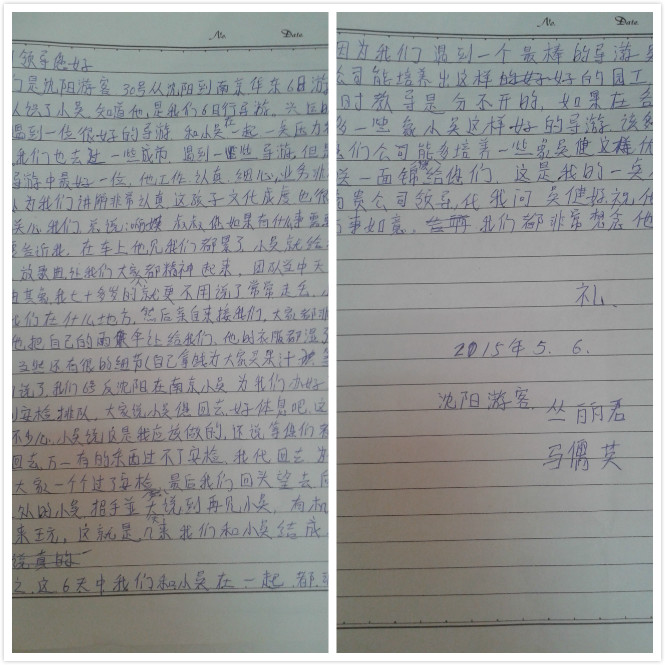 No. Date.
领导您好
们是沈阳游客 30号从沈阳到南京华东6日游
认识了小吴,知道他,是我们6日行导游。
遇到一位很好的导游 和小吴在一起一点压力都
我们也去过一些城市,遇到一些导游,但是
导游中最好一位,他工作认真,细心,业务
认为我们讲解非常认真 这孩子文化成度也很
关心我们 总说:阿姨 叔叔 你如果有什么事需要
要告诉我,在车上他见我们都累了小吴就给
放歌曲让我们大家都精神起来,团队当中天
由其是我七十多岁的就更不用说了常常走丢,
我们在什么地方,然后亲自来接我们,大家都非
他把自己的雨伞让给我们,他的衣服都湿了
当然还有很的细节(自己拿钱为大家买果汁
说了,我们6号反沈阳在南京小吴为我们办好
到安检排队,大家说小吴你回去好休息吧,这
不少心,小吴说这是我应该做的,还说等你们
回去,万一有的东西过不了安检,我代回去
大家一个个过了安检,最后我们回头望去
处的小吴,招手并大说到再见小吴,有机
来玩,这就是几来我们和小吴结成
之,这6天中我们和小吴在一起,都
No. Date
因为我们遇到一个最棒的导游
公司能培养出这样好的员工
时教导是分不开的,如果在
多一些象小吴这样好的导游 该多
我们公司能多培养一些象吴健这样优
送一面锦给他们,这是我的一点
贵公司领导代我问吴健好祝他
事如意,我们都非常想念他
礼、
2015年5.6.
沈阳游客.丛丽君
马儒英